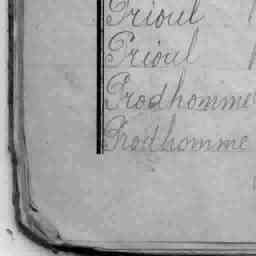 Prioul
Prioul
Prodhomme
Prodhomme